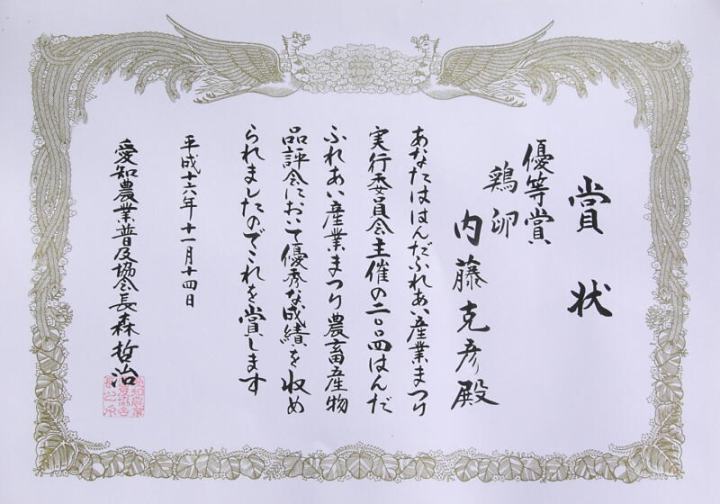 賞状
優等賞
鶏卵
内藤克彦殿
あなたははんだふれあい産業まつり
実行委員会主催の二〇〇四はんだ
ふれあい産業まつり農畜産物
品評会において優秀な成績を収め
られましたのでこれを賞します
平成十六年十一月十四日
愛知農業普及協会長森哲治